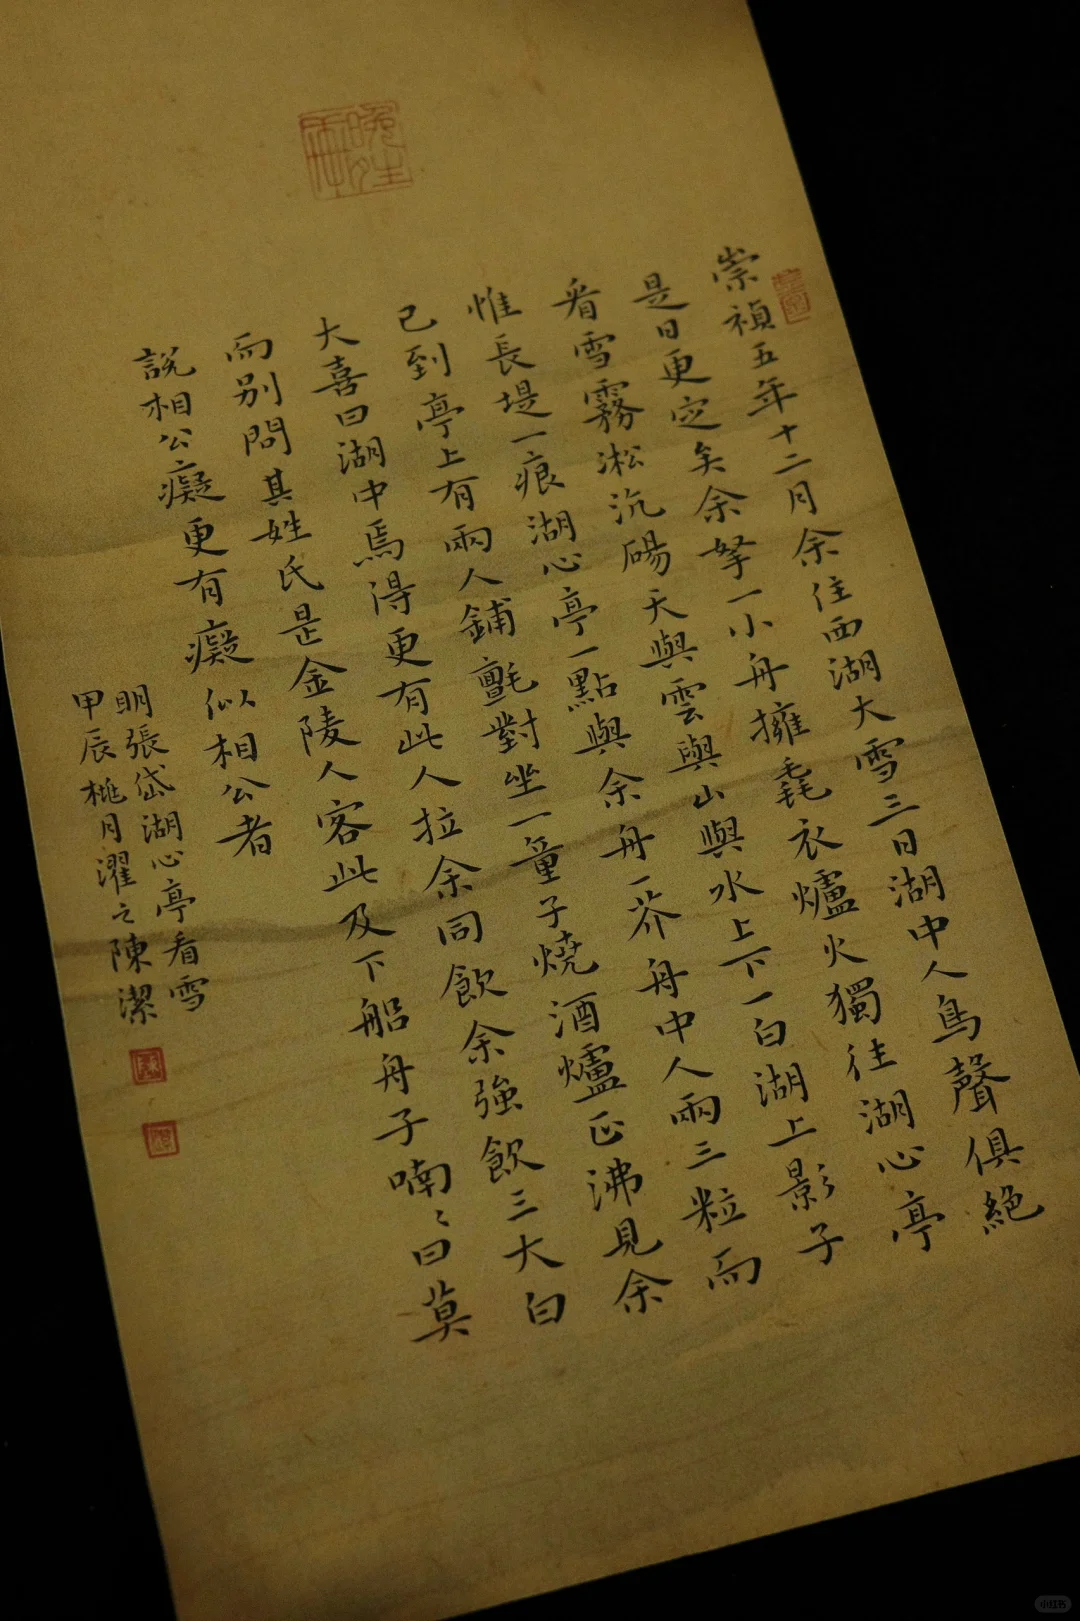 崇禎五年十二月余住西湖大雪三日湖中人鳥聲俱絕
是日更定矣余拏一小舟擁毳衣爐火獨往湖心亭
看雪霧凇沆碭天與雲與山與水上下一白湖上影子
惟長堤一痕湖心亭一點與余舟一芥舟中人兩三粒而
已到亭上有兩人鋪氈對坐一童子燒酒爐正沸見余
大喜曰湖中焉得更有此人拉余同飲余強飲三大白
而別問其姓氏是金陵人客此及下船舟子喃〻曰莫
說相公癡更有癡似相公者
明張岱湖心亭看雪
甲辰桃月濯之陳潔
小红书